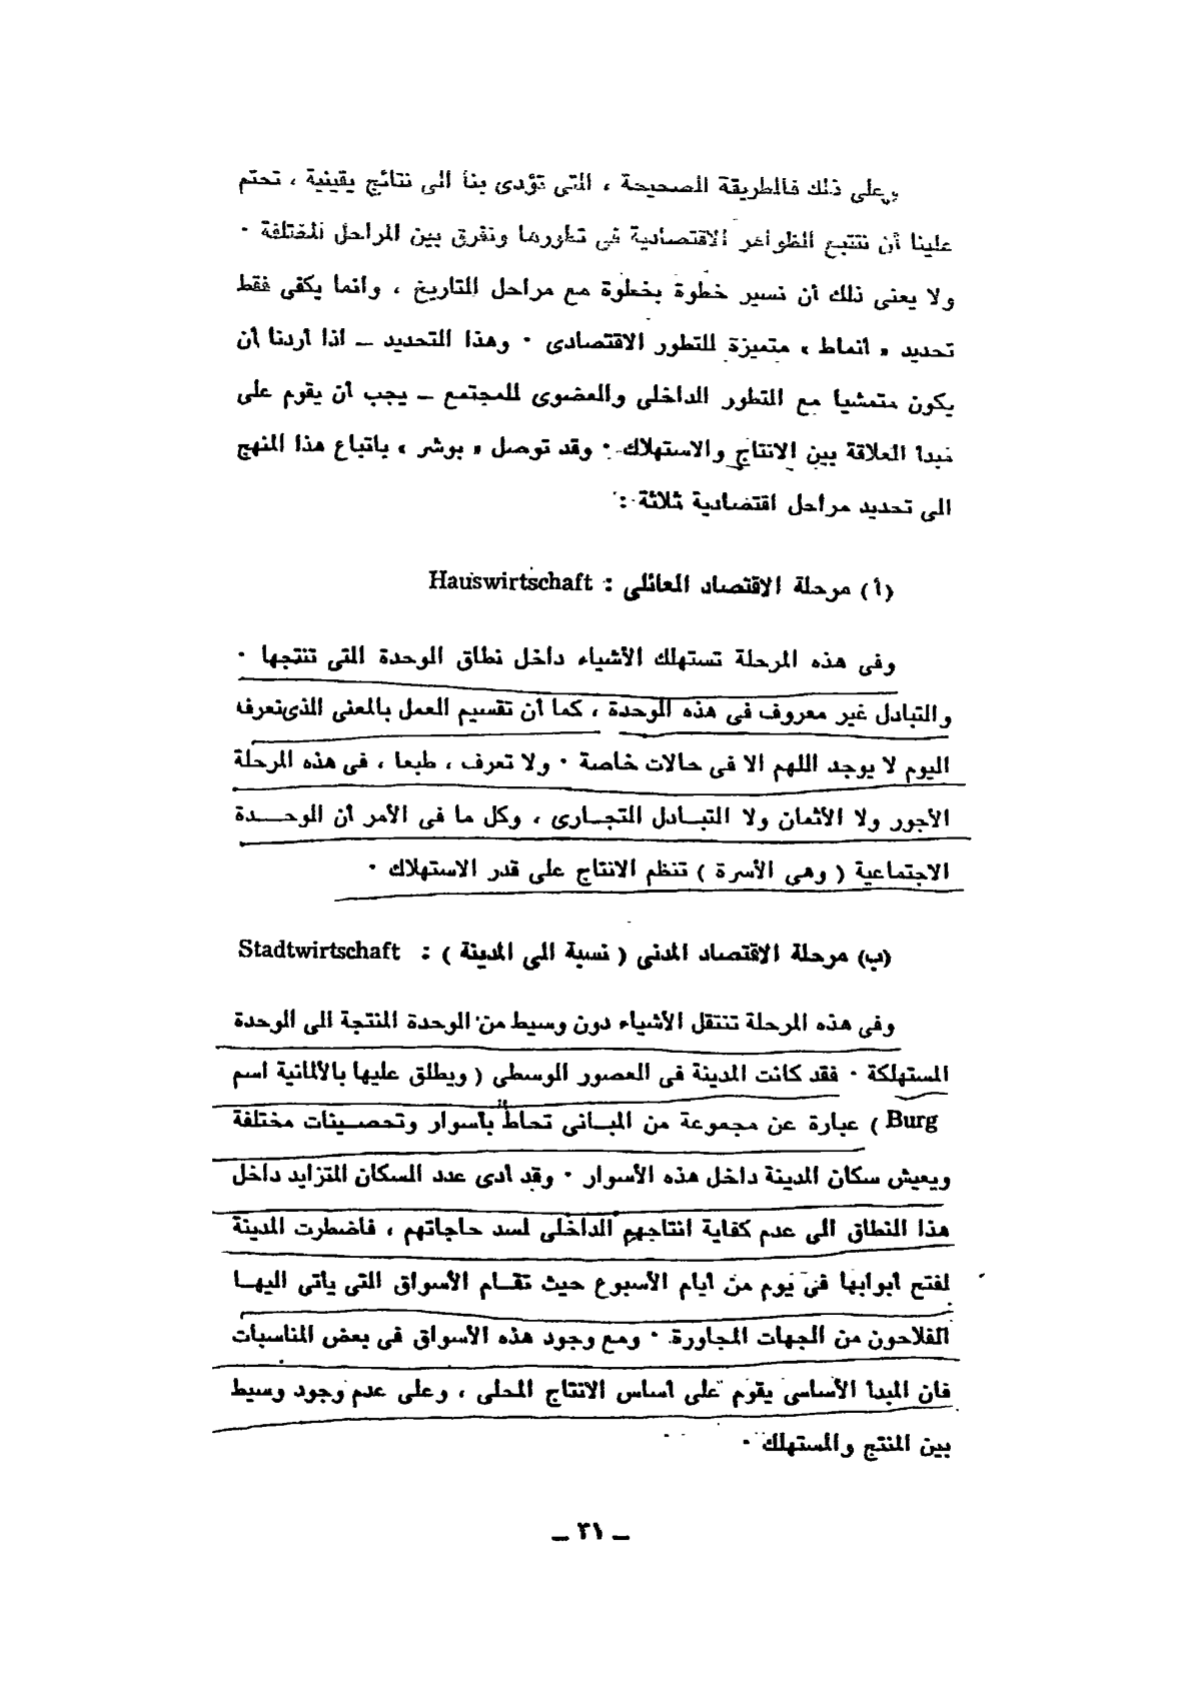 وعلى ذلك فالطريقة الصحيحة ، التى تؤدى بنا الى نتائج يقينية ، تحتم
علينا أن نتتبع الظواهر الاقتصادية فى تطورها ونفرق بين المراحل المختلفة ٠
ولا يعنى ذلك أن نسير خطوة بخطوة مع مراحل التاريخ ، وانما يكفى فقط
تحديد « انماط » متميزة للتطور الاقتصادى ٠ وهذا التحديد ــ اذا أردنا أن
يكون متمشيا مع التطور الداخلى والعضوى للمجتمع ــ يجب أن يقوم على
مبدا العلاقة بين الانتاج والاستهلاك ٠ وقد توصل « بوشر » باتباع هذا المنهج
الى تحديد مراحل اقتصادية ثلاثة :
(أ) مرحلة الاقتصاد العائلى : Hauswirtschaft
وفى هذه المرحلة تستهلك الأشياء داخل نطاق الوحدة التى تنتجها ٠
والتبادل غير معروف فى هذه الوحدة ، كما أن تقسيم العمل بالمعنى الذى نعرفه
اليوم لا يوجد اللهم الا فى حالات خاصة ٠ ولا تعرف ، طبعا ، فى هذه المرحلة
الأجور ولا الأثمان ولا التبــادل التجــارى ، وكل ما فى الأمر أن الوحــــدة
الاجتماعية ( وهى الأسرة ) تنظم الانتاج على قدر الاستهلاك ٠
(ب) مرحلة الاقتصاد المدنى ( نسبة الى المدينة ) : Stadtwirtschaft
وفى هذه المرحلة تنتقل الأشياء دون وسيط من الوحدة المنتجة الى الوحدة
المستهلكة ٠ فقد كانت المدينة فى العصور الوسطى ( ويطلق عليها بالألمانية اسم
Burg ) عبارة عن مجموعة من المبــانى تحاط بأسوار وتحصــينات مختلفة
ويعيش سكان المدينة داخل هذه الأسوار ٠ وقد أدى عدد السكان المتزايد داخل
هذا النطاق الى عدم كفاية انتاجهم الداخلى لسد حاجاتهم ، فاضطرت المدينة
لفتح ابوابها فى يوم من ايام الأسبوع حيث تقــام الأسواق التى يأتى اليهــا
الفلاحون من الجهات المجاورة ٠ ومع وجود هذه الأسواق فى بعض المناسبات
فان المبدأ الأساسى يقوم على اساس الانتاج المحلى ، وعلى عدم وجود وسيط
بين المنتج والمستهلك ٠
ــ ٣١ ــ